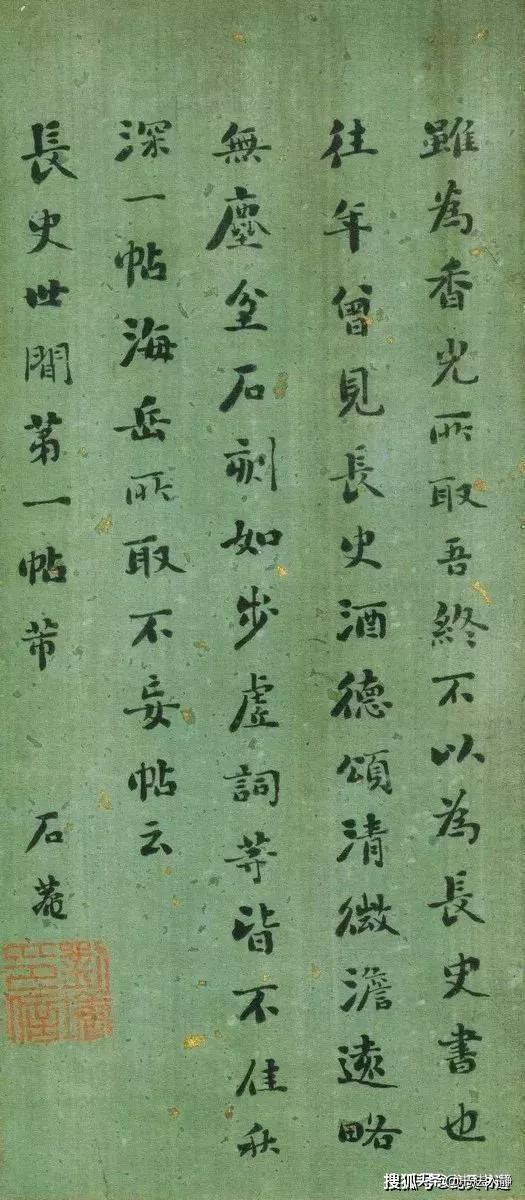 雖為香光所取吾終不以為長史書也
往年曾見長史酒德頌清微澹遠略
無塵坌石刻如步虛詞等皆不佳秋
深一帖海岳所取不妄帖云
長史世間第一帖帋
石菴
劉墉
印信
搜狐号@